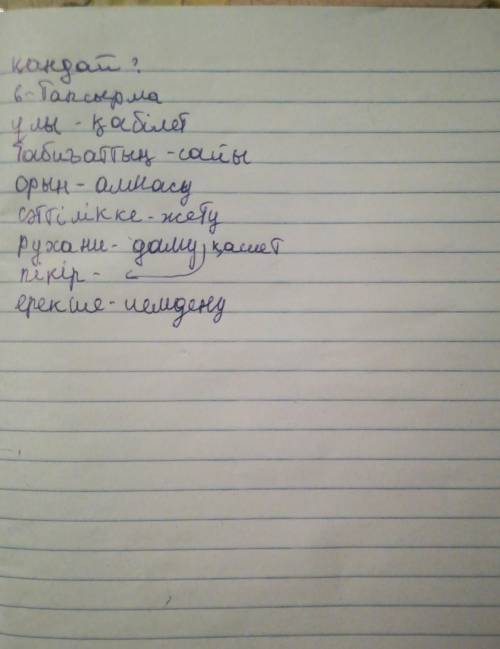 қандай ?
6-Тапсырма
ұлы - қабілет
Табиъаттың - сайы
орын - алмасу
сәттілікке - жету
рухани - даму, қасиет
пікір -
ерекше - иемдену